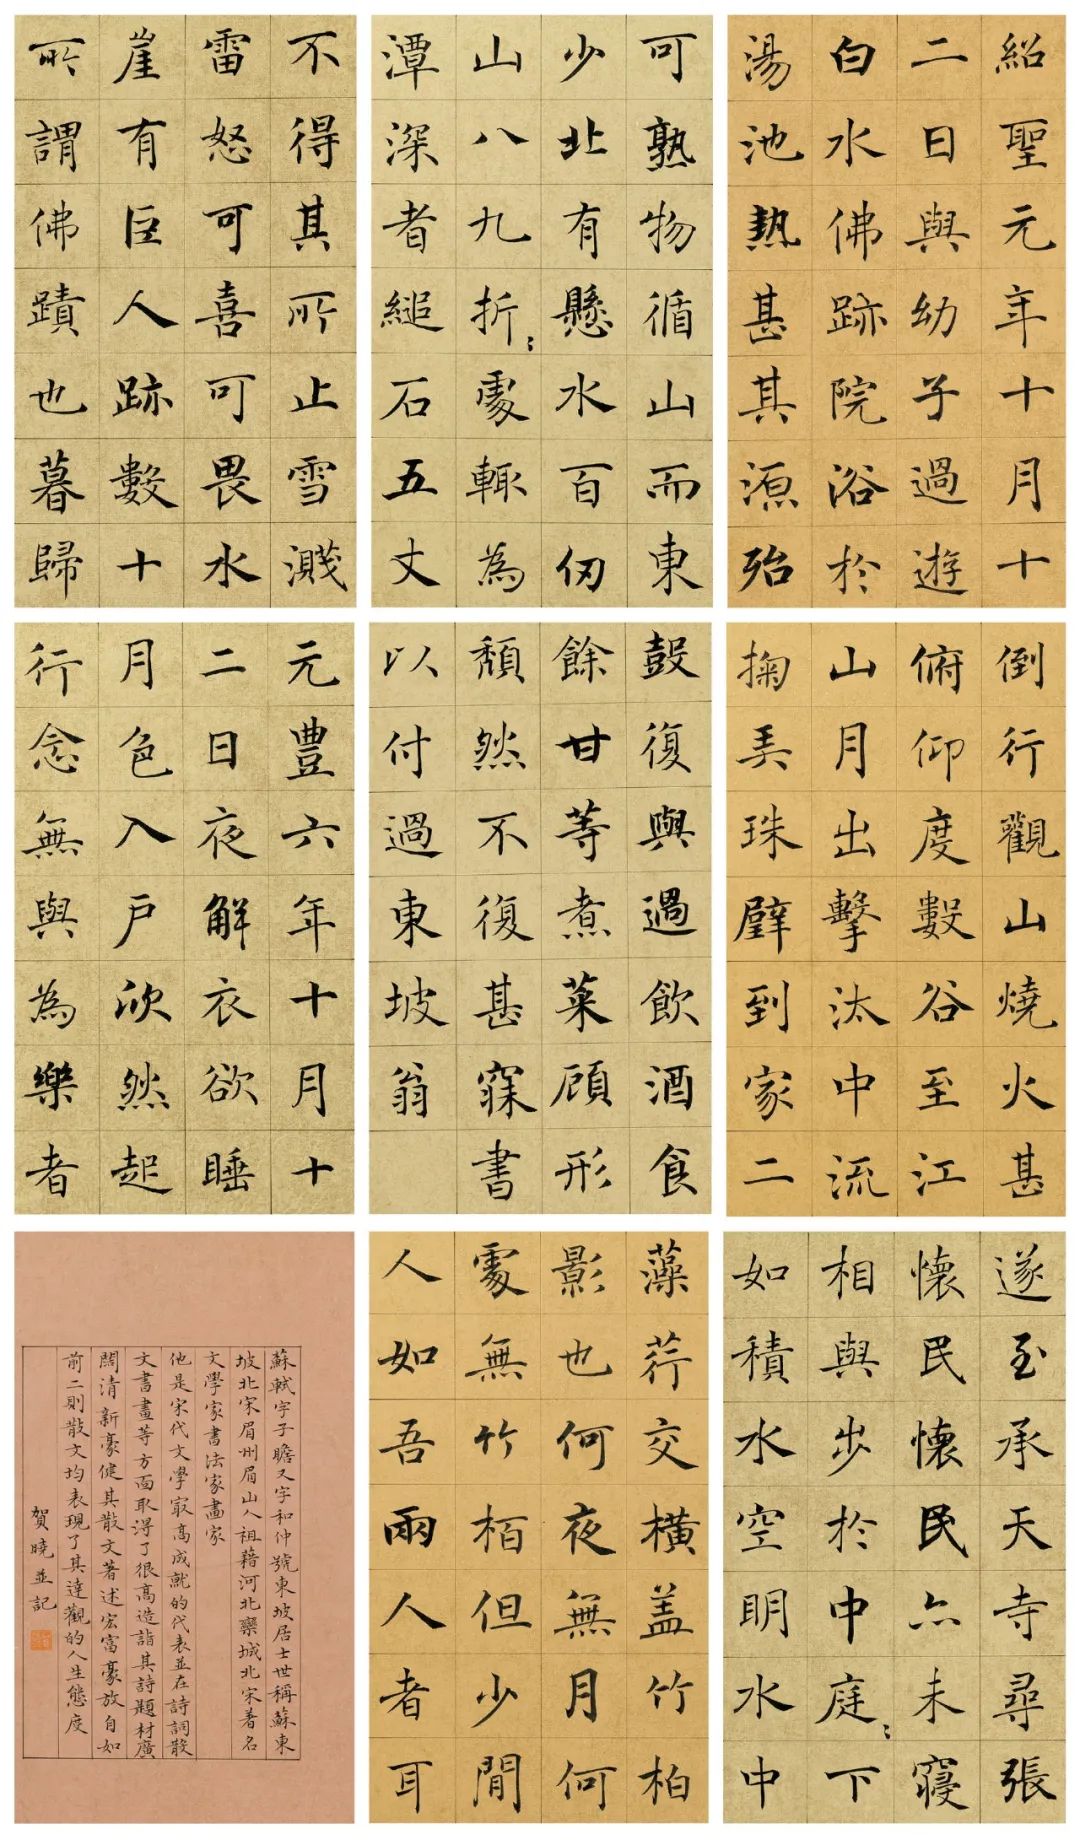 紹聖元年十月十
二日與幼子過遊
白水佛跡院浴於
湯池熱甚其源殆
可熟物循山而東
少北有懸水百仞
山八九折〻處輒為
潭深者縋石五丈
不得其所止雪濺
雷怒可喜可畏水
崖有巨人跡數十
所謂佛蹟也暮歸
倒行觀山燒火甚
俯仰度數谷至江
山月出擊汰中流
掬弄珠璧到家二
鼓復與過飲酒食
餘甘等煮菜顧形
頹然不復甚寐書
以付過東坡翁
元豐六年十月十
二日夜解衣欲睡
月色入戶欣然起
行念無與為樂者
遂至承天寺尋張
懷民懷民亦未寢
相與步於中庭〻下
如積水空明水中
藻荇交橫盖竹柏
影也何夜無月何
處無竹栢但少閒
人如吾兩人者耳
蘇軾字子瞻又字和仲號東坡居士世稱蘇東
坡北宋眉州眉山人祖藉河北欒城北宋著名
文學家書法家畫家
他是宋代文學寂高成就的代表並在詩詞散
文書畫等方面取得了很高造詣其詩題材廣
闊清新豪健其散文著述宏富豪放自如
前二則散文均表現了其達觀的人生態度
賀曉並記